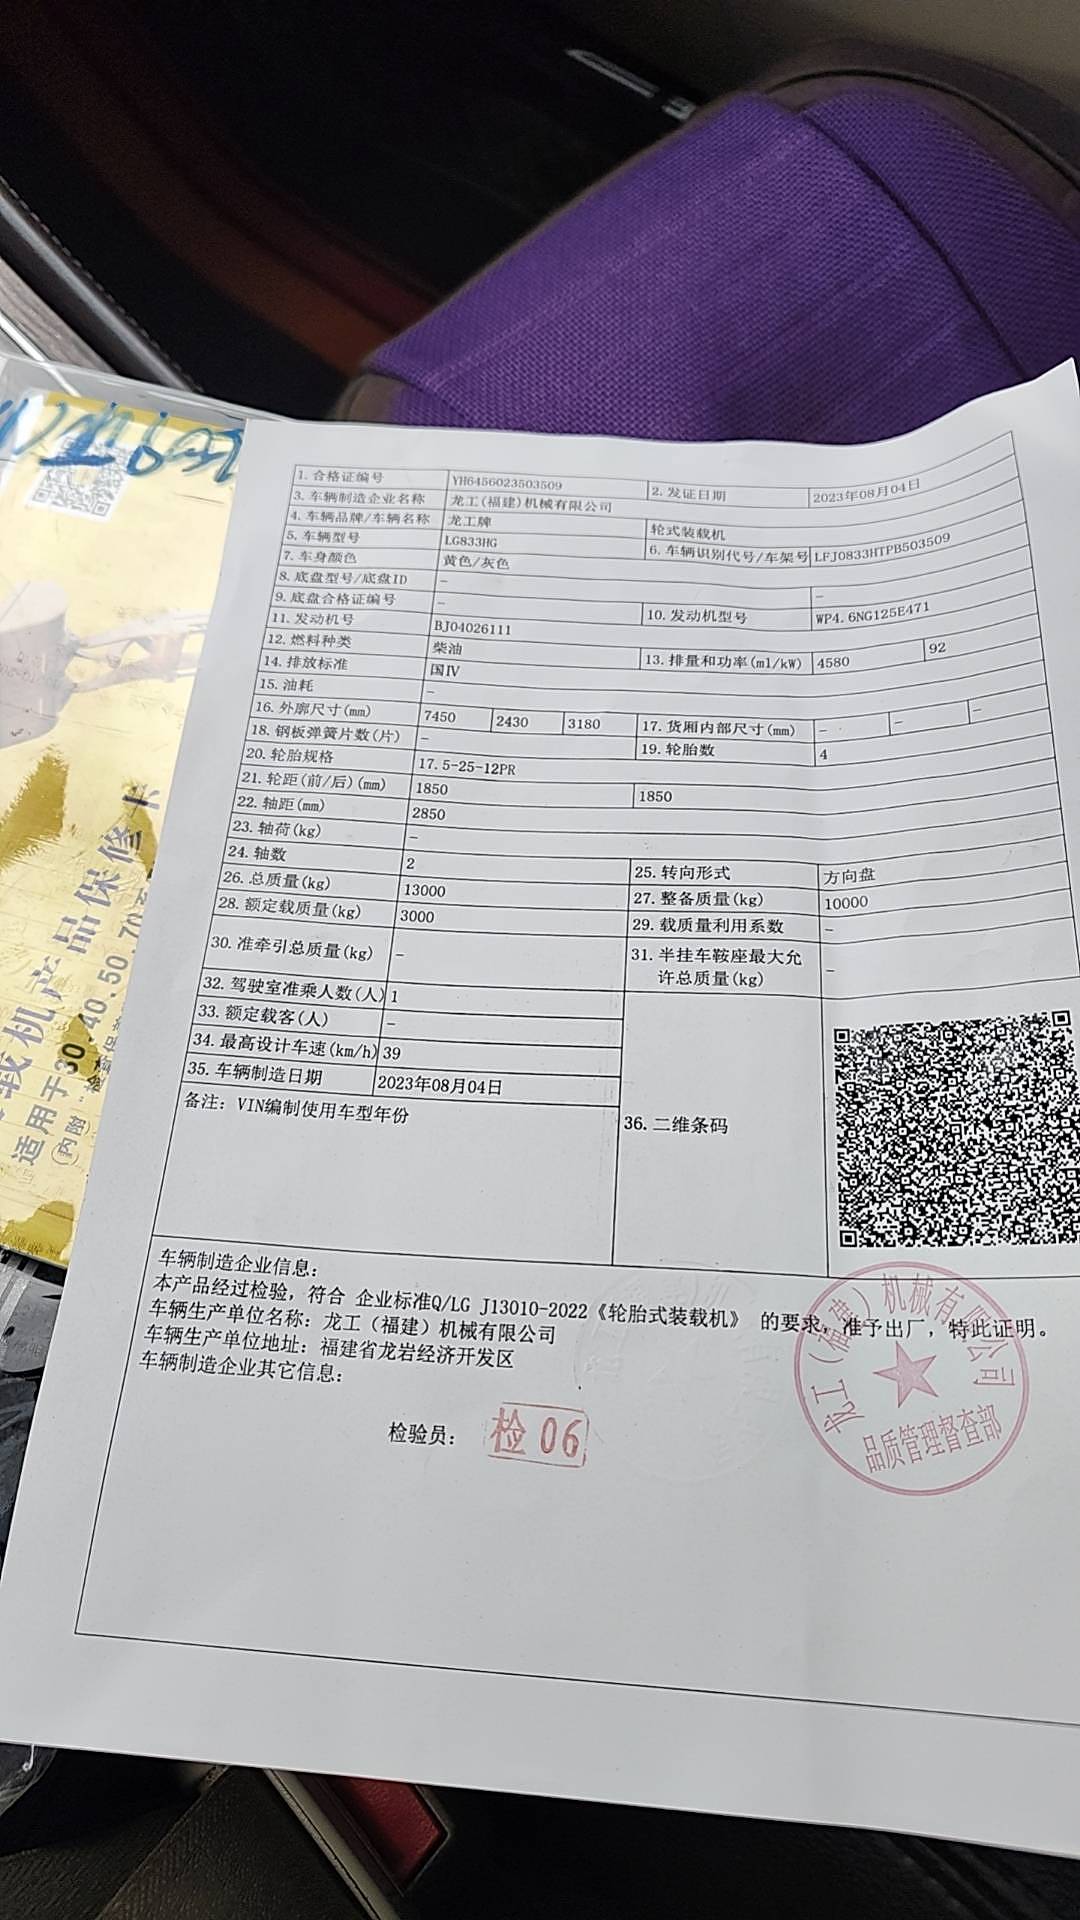 1.合格证编号 YH6456023503509 2.发证日期 2023年08月04日
3.车辆制造企业名称 龙工(福建)机械有限公司
4.车辆品牌/车辆名称 龙工牌 轮式装载机
5.车辆型号 LG833HG 6.车辆识别代号/车架号 LFJ0833HTPB503509
7.车身颜色 黄色/灰色
8.底盘型号/底盘ID － －
9.底盘合格证编号 － 10.发动机型号 WP4.6NG125E471
11.发动机号 BJ04026111
12.燃料种类 柴油 13.排量和功率(ml/kW) 4580 92
14.排放标准 国Ⅳ
15.油耗 －
16.外廓尺寸(mm) 7450 2430 3180 17.货厢内部尺寸(mm) － － －
18.钢板弹簧片数(片) － 19.轮胎数 4
20.轮胎规格 17.5-25-12PR
21.轮距(前/后)(mm) 1850 1850
22.轴距(mm) 2850
23.轴荷(kg) －
24.轴数 2 25.转向形式 方向盘
26.总质量(kg) 13000 27.整备质量(kg) 10000
28.额定载质量(kg) 3000 29.载质量利用系数 －
30.准牵引总质量(kg) － 31.半挂车鞍座最大允
许总质量(kg) －
32.驾驶室准乘人数(人) 1
33.额定载客(人) －
34.最高设计车速(km/h) 39
35.车辆制造日期 2023年08月04日
备注：VIN编制使用车型年份
36.二维条码
车辆制造企业信息：
本产品经过检验，符合 企业标准Q/LG J13010-2022《轮胎式装载机》 的要求，准予出厂，特此证明。
车辆生产单位名称：龙工（福建）机械有限公司
车辆生产单位地址：福建省龙岩经济开发区
车辆制造企业其它信息：
检验员： 检 06
龙工（福建）机械有限公司
品质管理督查部
载机产品保修卡
适用于30.40.50.70